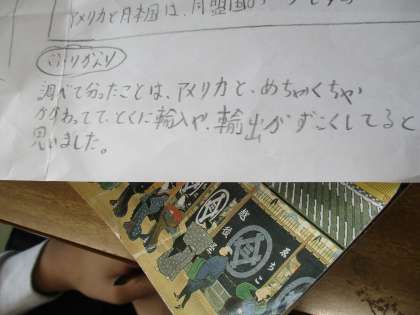 アメリカと日本国は、同盟国
ふりかえり
調べて分ったことは、アメリカと、めちゃくちゃ
かかわってて、とくに輸入や、輸出がすごくしてると
思いました。
越後屋